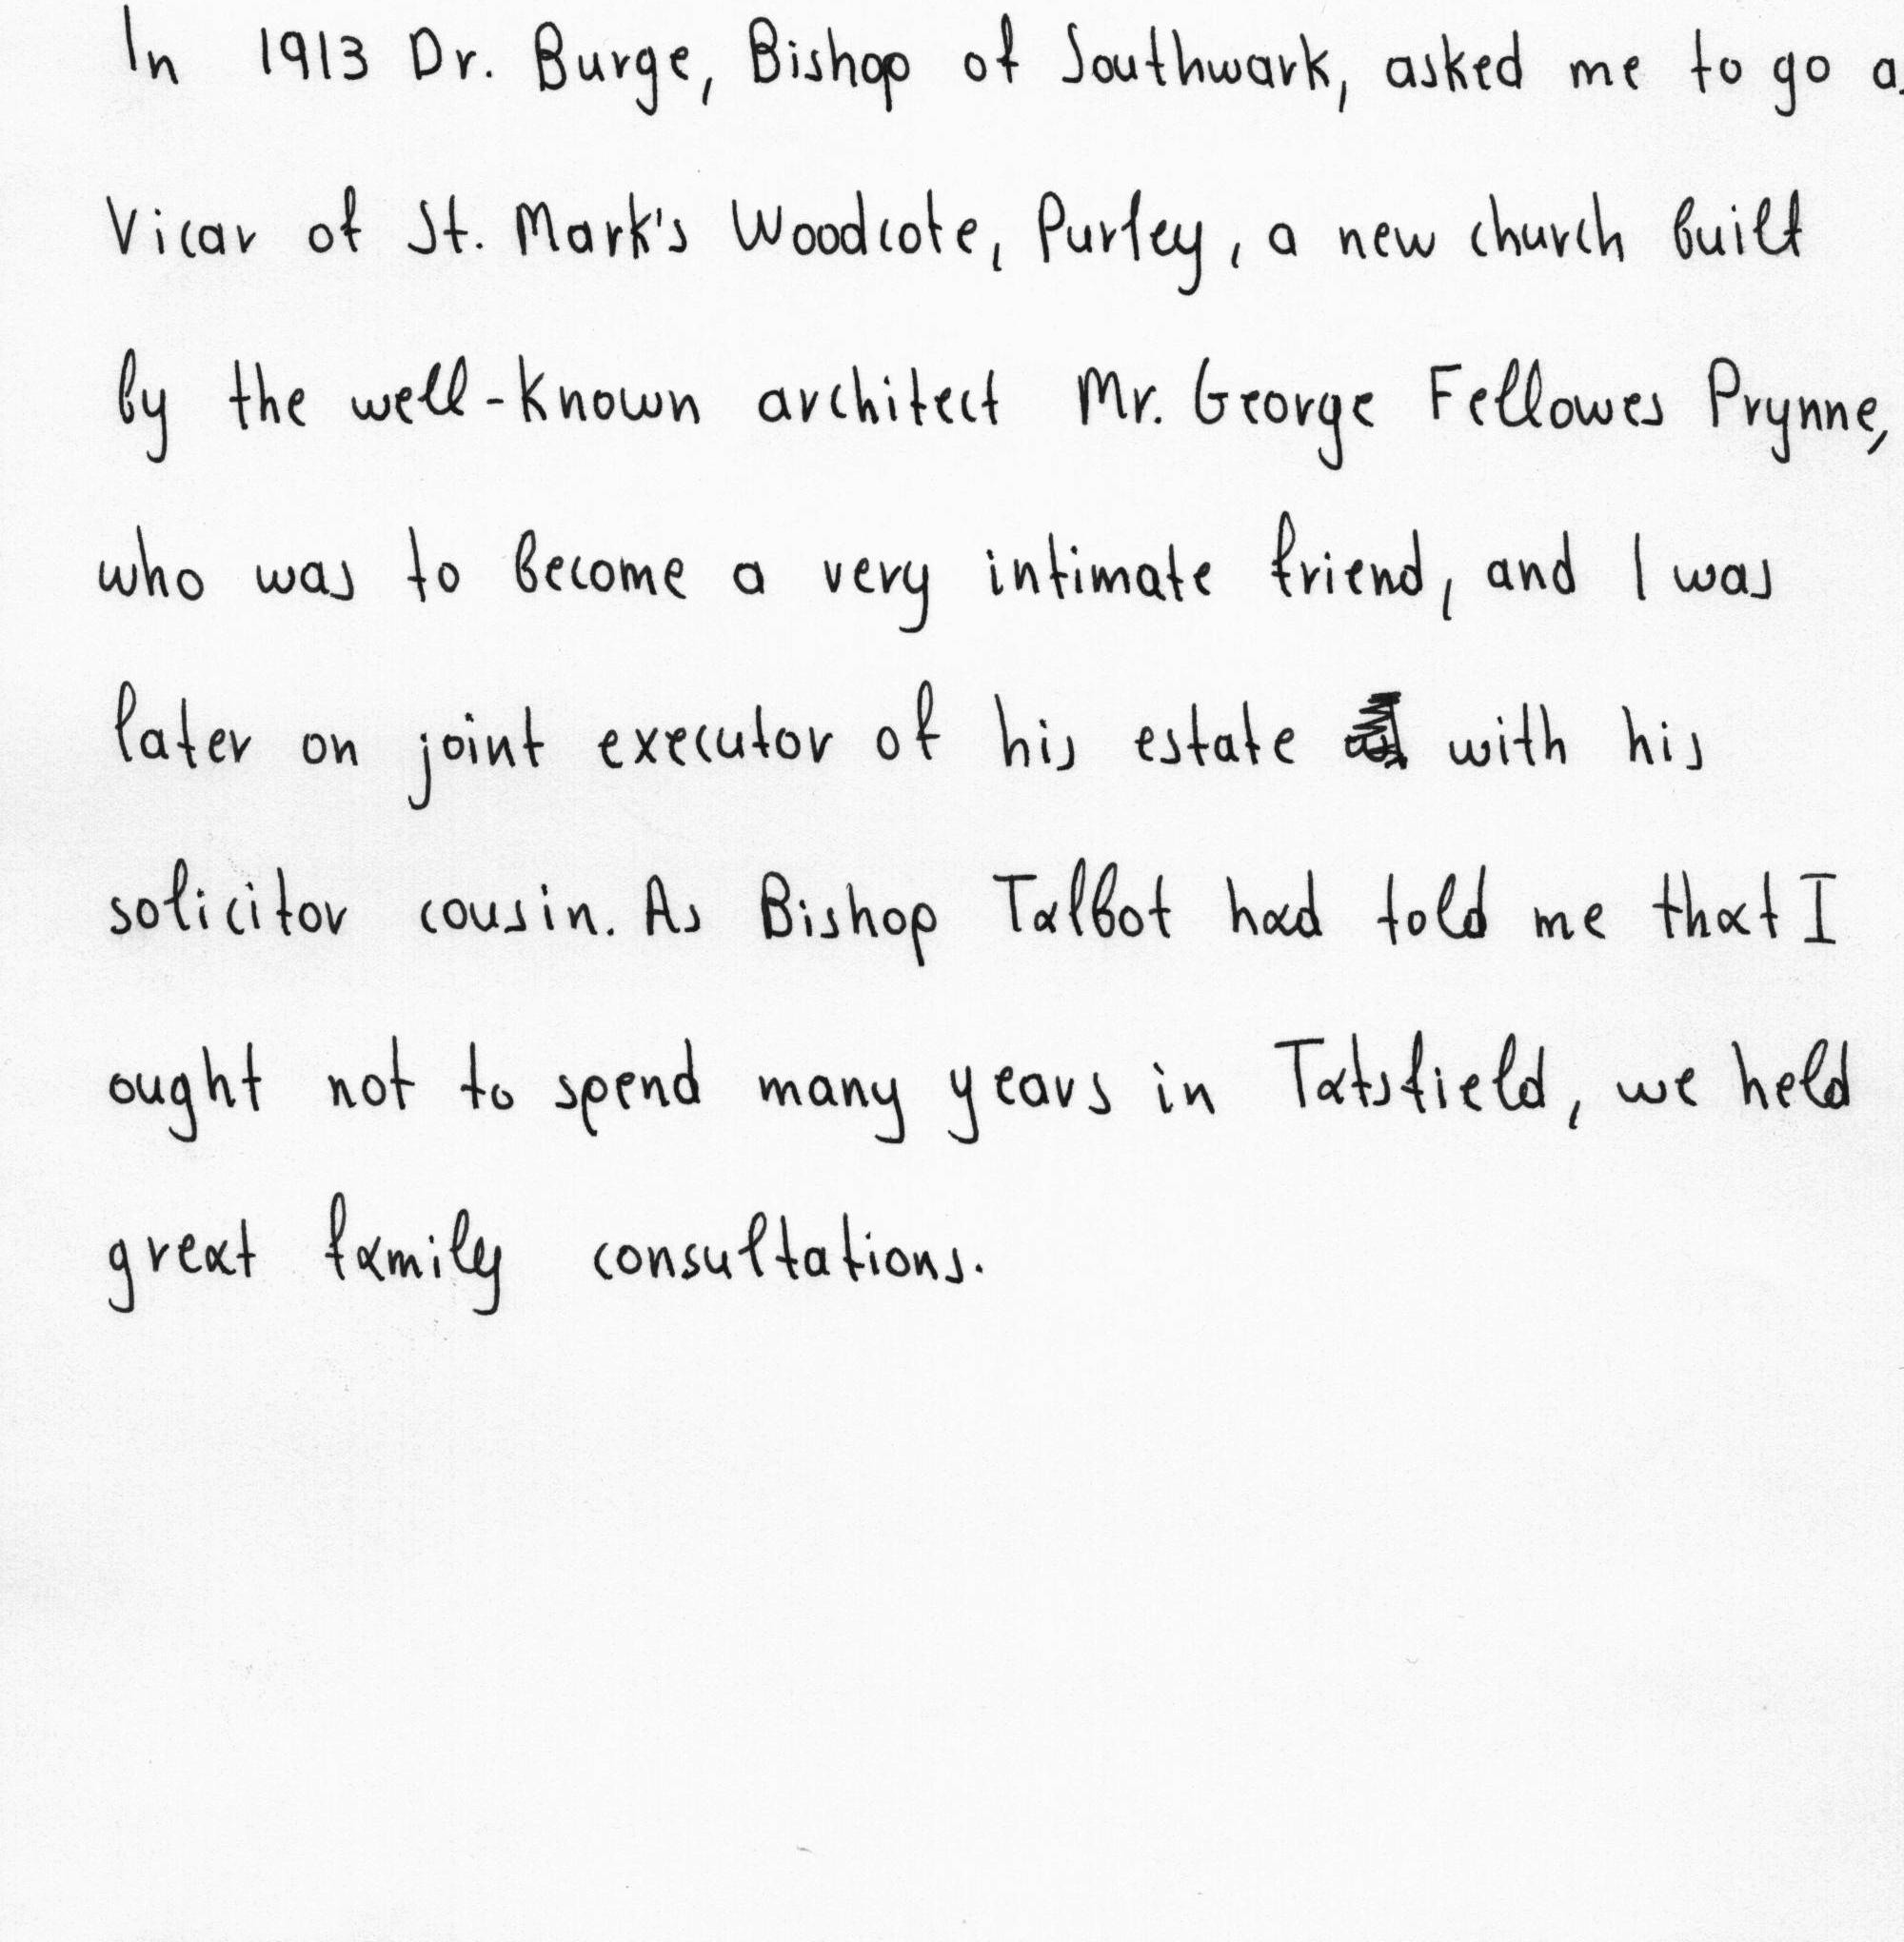 In 1913 Dr. Burge, Bishop of Southwark, asked me to go as
Vicar of St. Mark's Woodcote, Purley, a new church built
by the well-known architect Mr. George Fellowes Prynne,
who was to become a very intimate friend, and I was
later on joint executor of his estate with his
solicitor cousin. As Bishop Talbot had told me that I
ought not to spend many years in Tatsfield, we held
great family consultations.